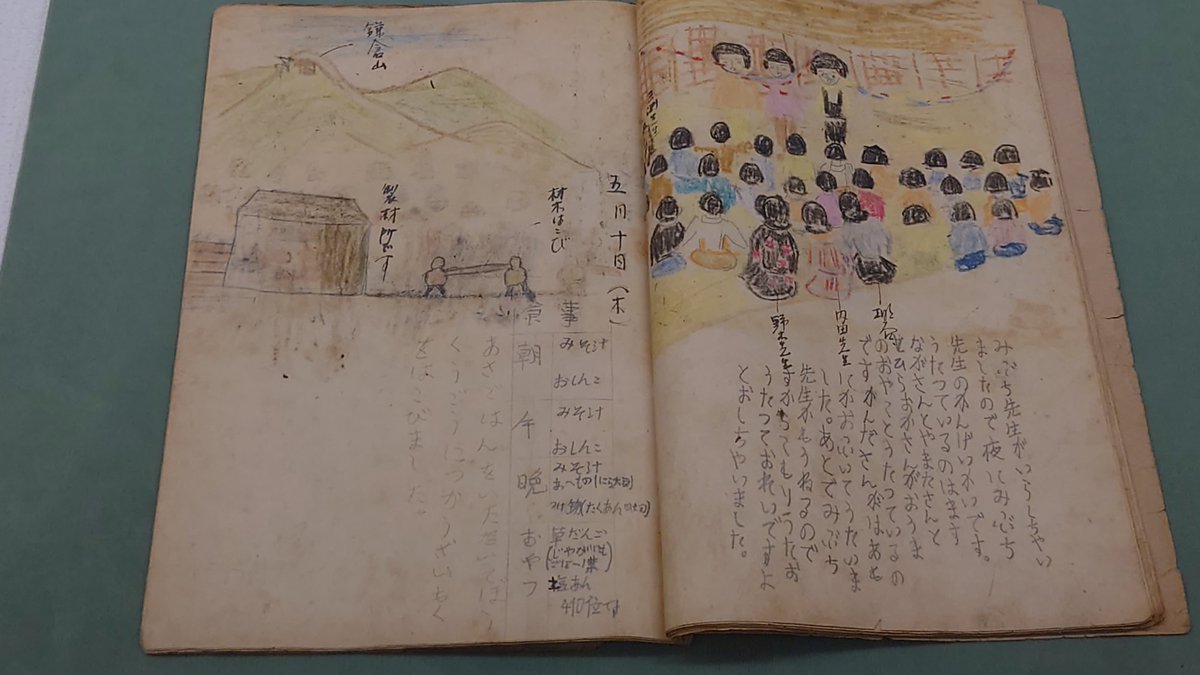 鎌倉山
製材所です
材木はこび
五月十日(木)
食事
朝
みそ汁
おしんこ
午
みそ汁
おしんこ
晩
みそ汁
つけ物(たくあん
おやつ
草だんご
塩あん
あさごはんをいただいてぼう
くうごうにつかうざいもく
をはこびました。
野木先生
内田先生
みぶち先生がいらっしゃい
ましたので夜にみぶち
先生のかんげいかいです。
うたっているのはます
ながさんとやまたさんと
ひらおかさんがおうま
のおやこをうたっているの
ですかんださん
にがおいてうたいま
した。あとでみぶち
先生がもうねるので
すからこもりうたお
うたっておれいですよ
とおしゃいました。